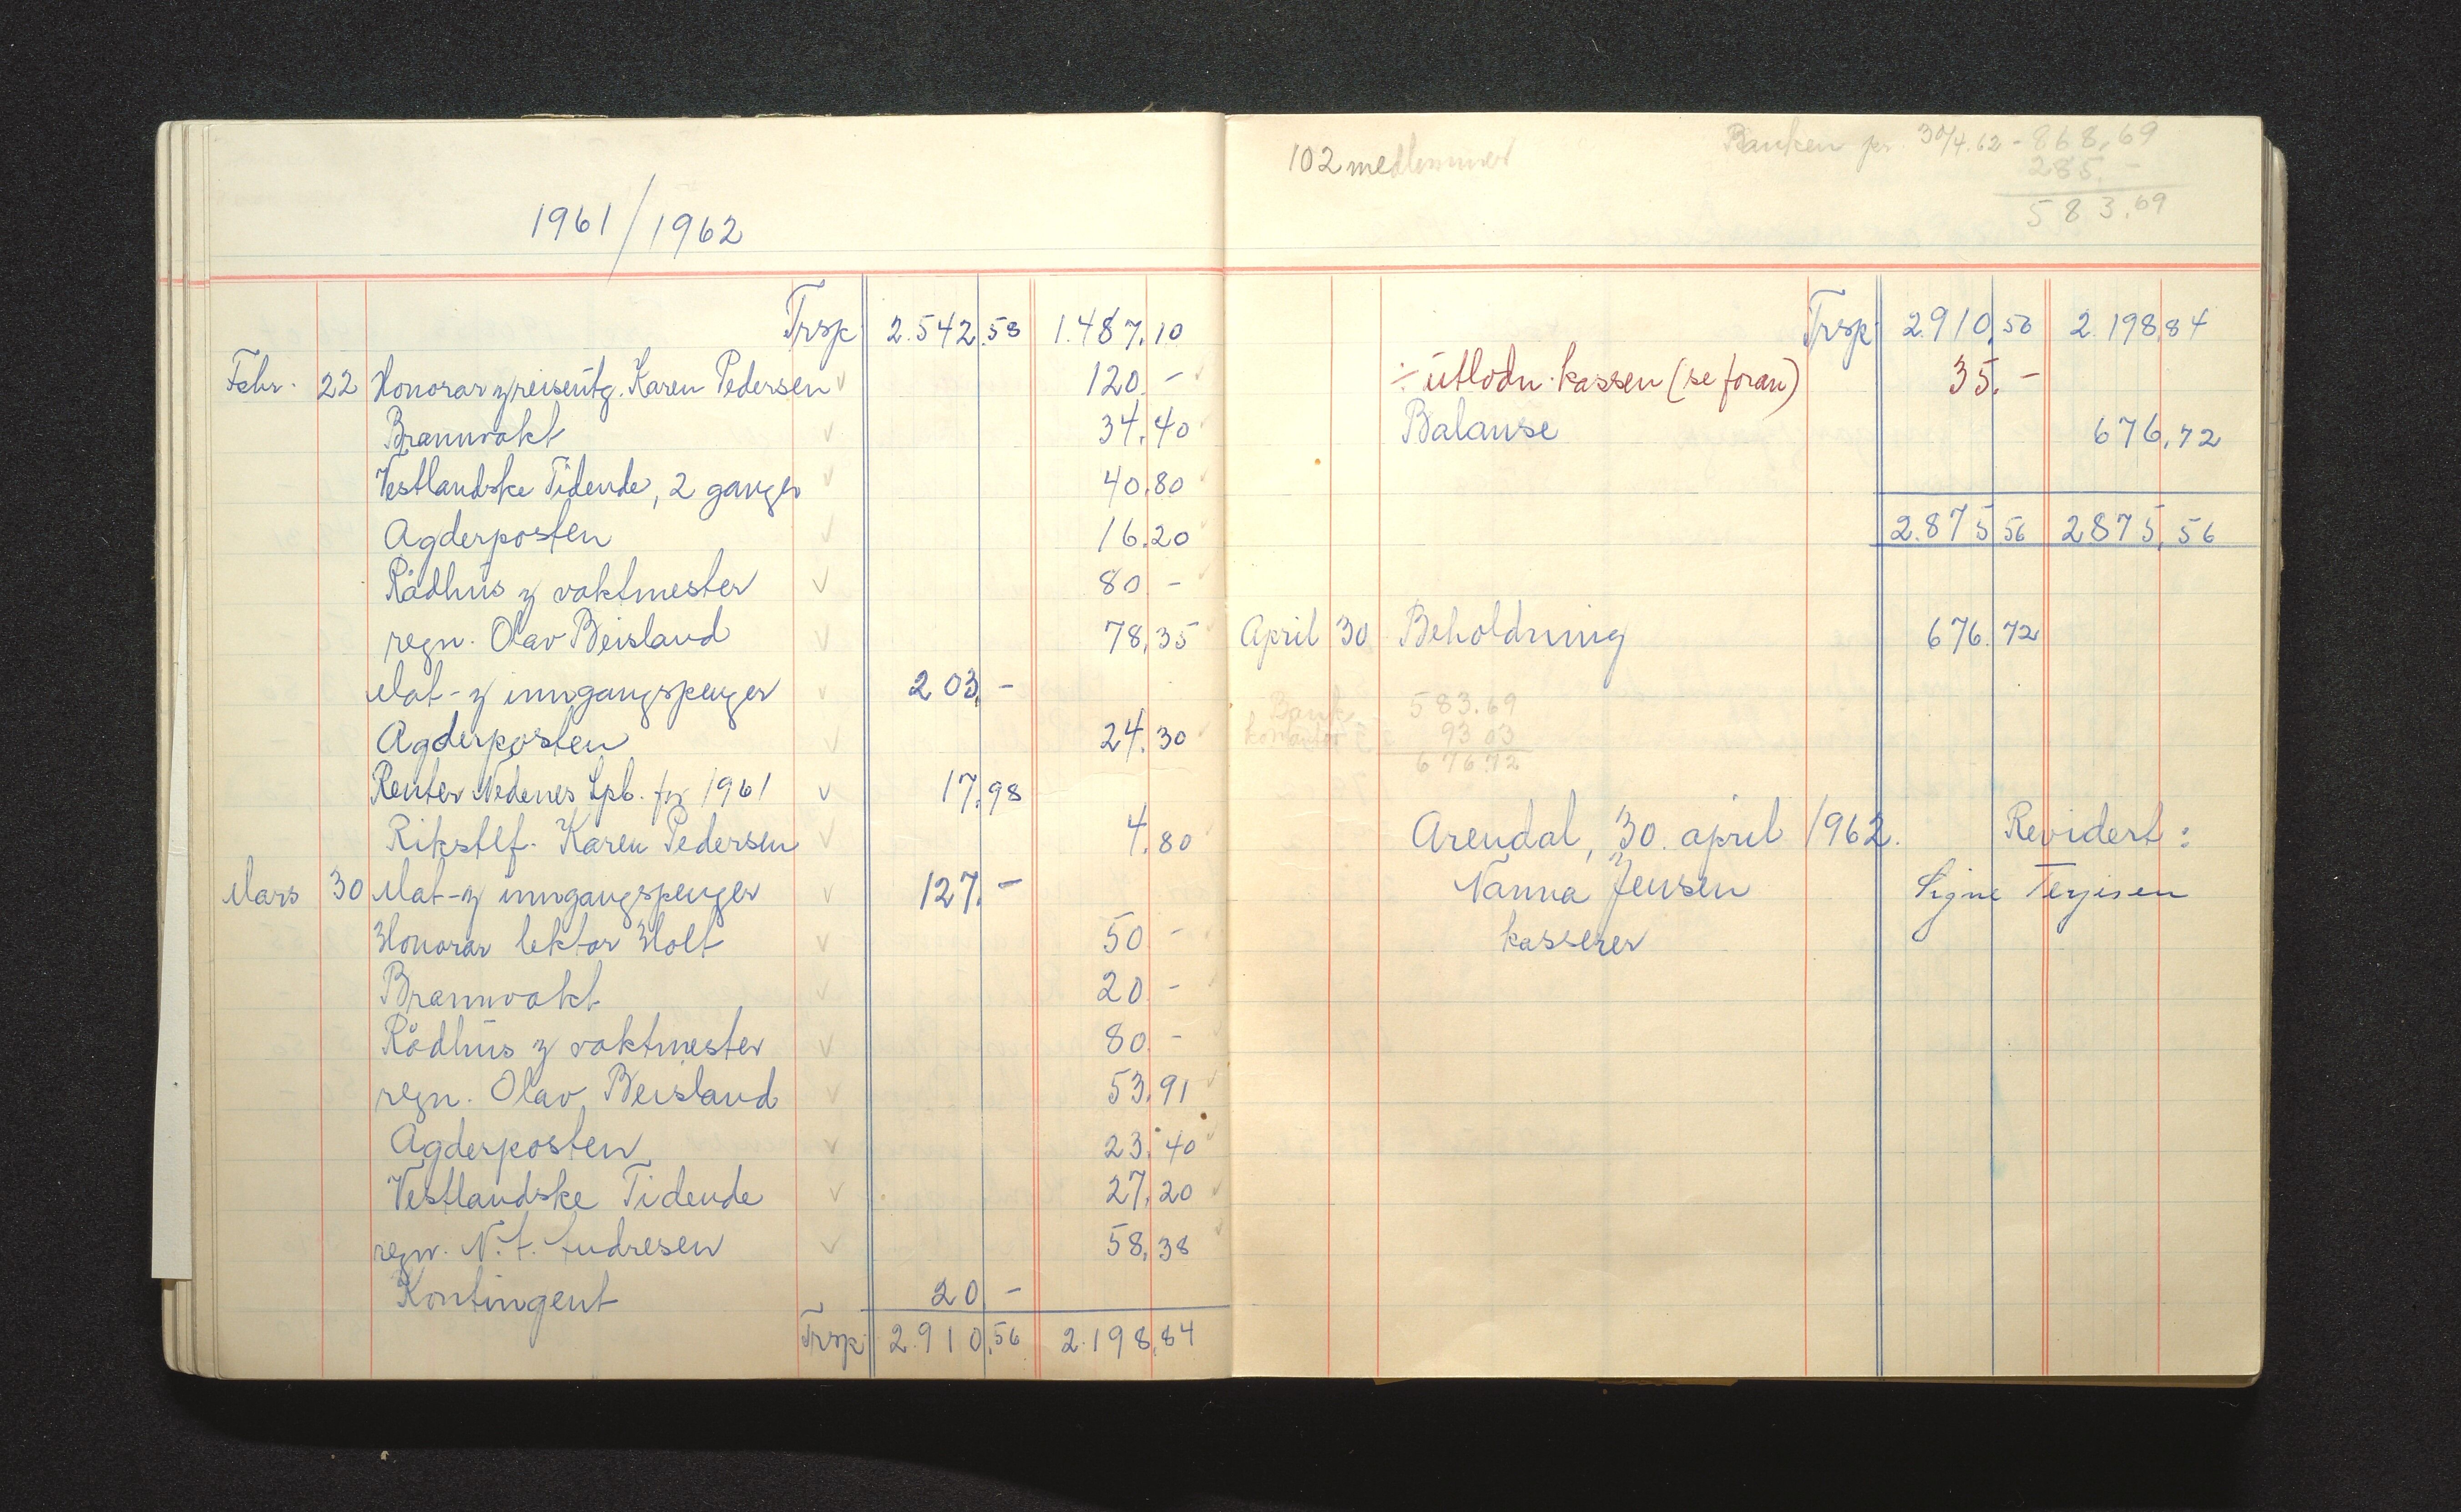 1961/1962
Trsp 2.542,58 1.487,10
Febr. 22 Honorar & reiseutg. Karen Pedersen 120.-
Brannvakt 34.40
Vestlandske Tidende, 2 ganger 40.80
Agderposten 16.20
Rådhus & vaktmester 80 -
regn. Olav Beisland 78,35
Mat- & inngangspenger 203,-
Agderposten 24.30
Renter Nedenes Spb. for 1961 17,98
Rikstlf. Karen Pedersen 4.80
Mars 30 Mat- & inngangspenger 127.-
Honorar lektor Holt 50 -
Brannvakt 20 -
Rådhus & vaktmester 80 -
regn. Olav Beisland 53,91
Agderposten 23.40
Vestlandske Tidende 27,20
regn. N. A. Andresen 58,38
Kontingent 20 -
Trsp. 2.910,56 2.198,84
102 medlemmer
Banken pr. 30/4.62 - 868,69
285.-
583,69
Trsp. 2.910,56 2.198,84
÷ utlodn. kassen (se foran) 35.-
Balanse 676,72
2.875,56 2875,56
April 30 Beholdning 676.72
Bank 583.69
kontanter 93 03
676.72
Arendal, 30. april 1962. Revidert:
Nanna Jensen Signe Terjesen
kasserer